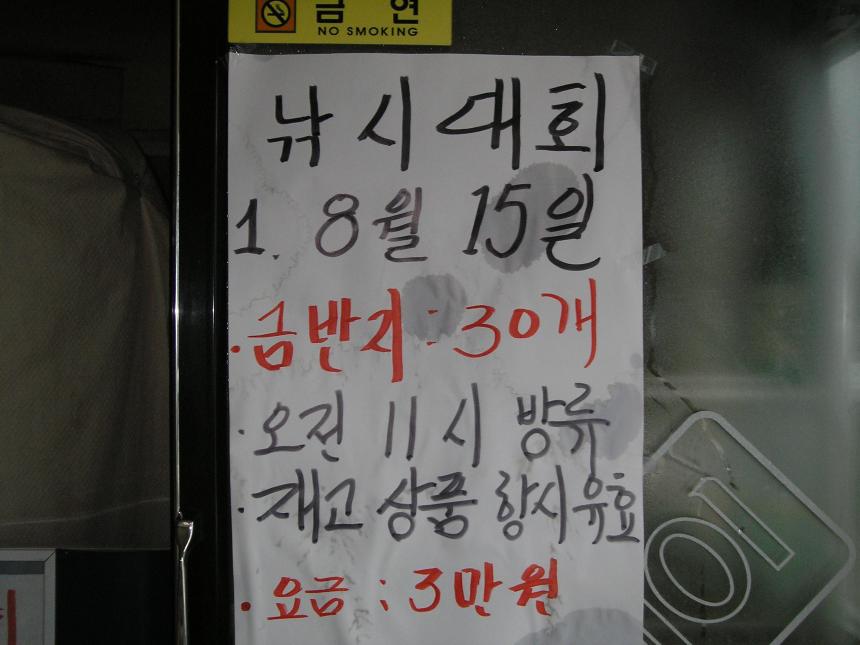 금 연
NO SMOKING
낚시대회
1. 8월 15일
· 금반지 : 30개
· 오전 11시 방류
· 재고 상품 항시유효
· 요금 : 3만원